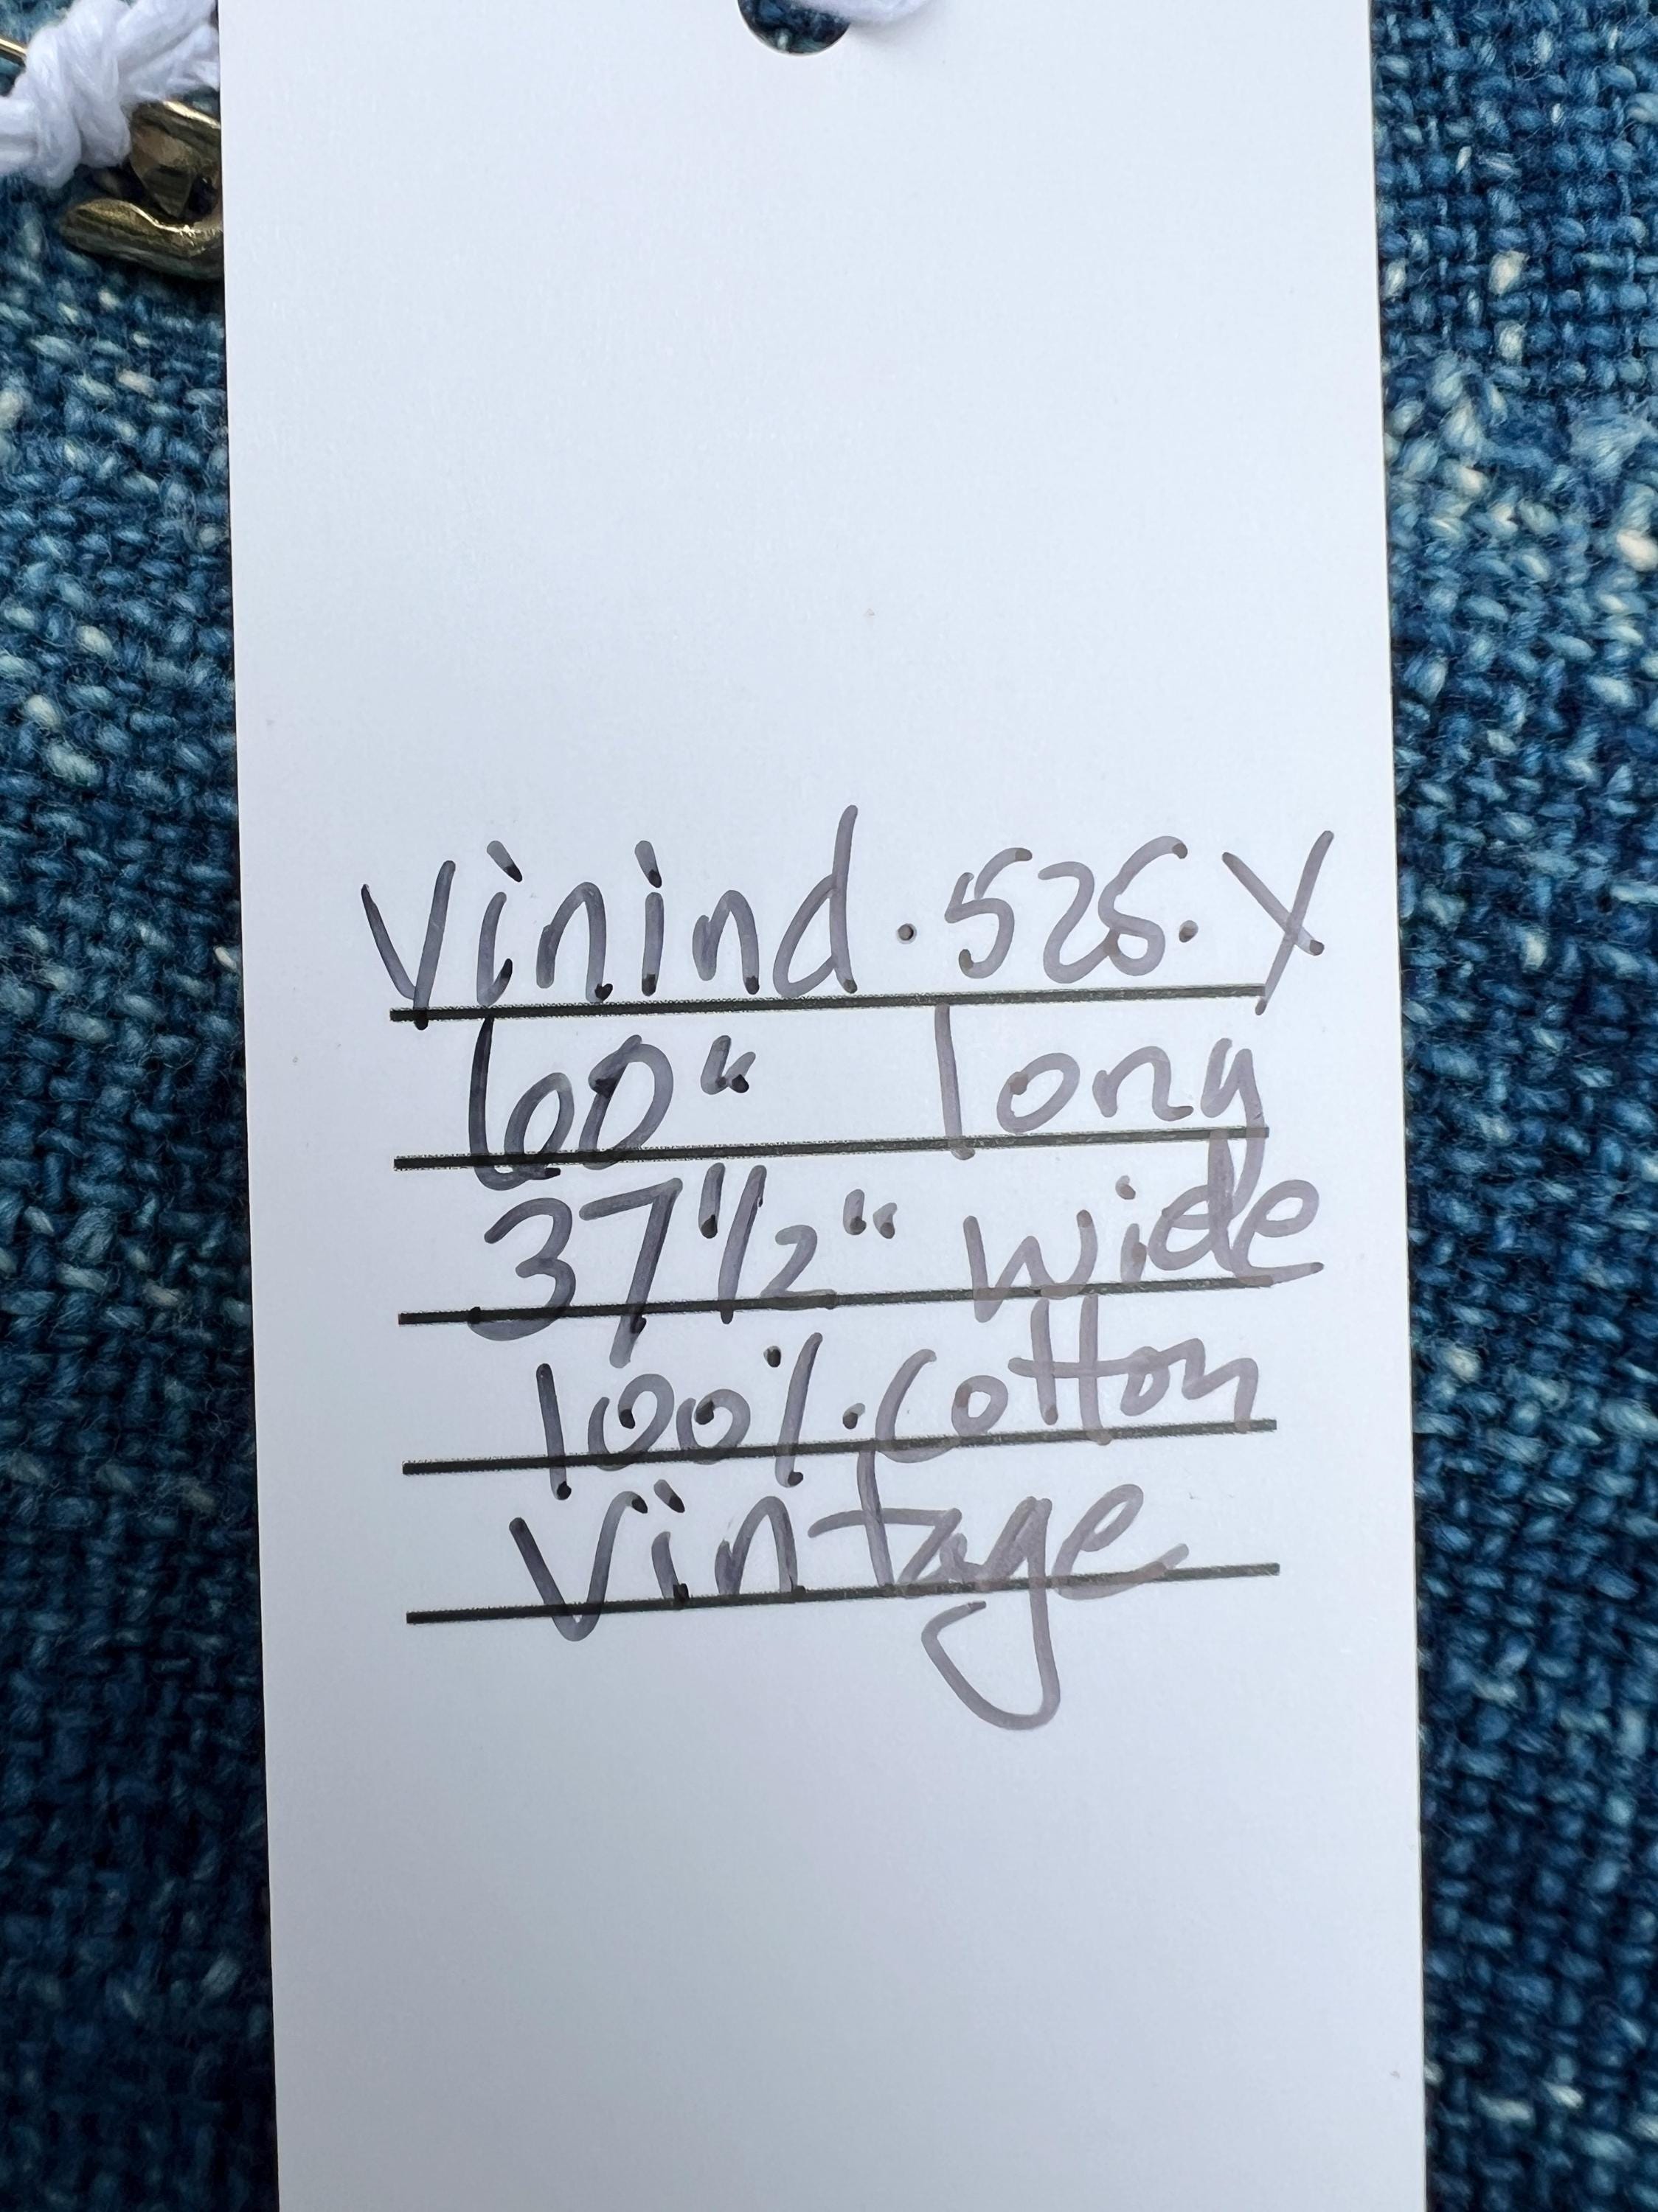 vinind.525.Y
60" long
37 1/2" wide
100% cotton
Vintage